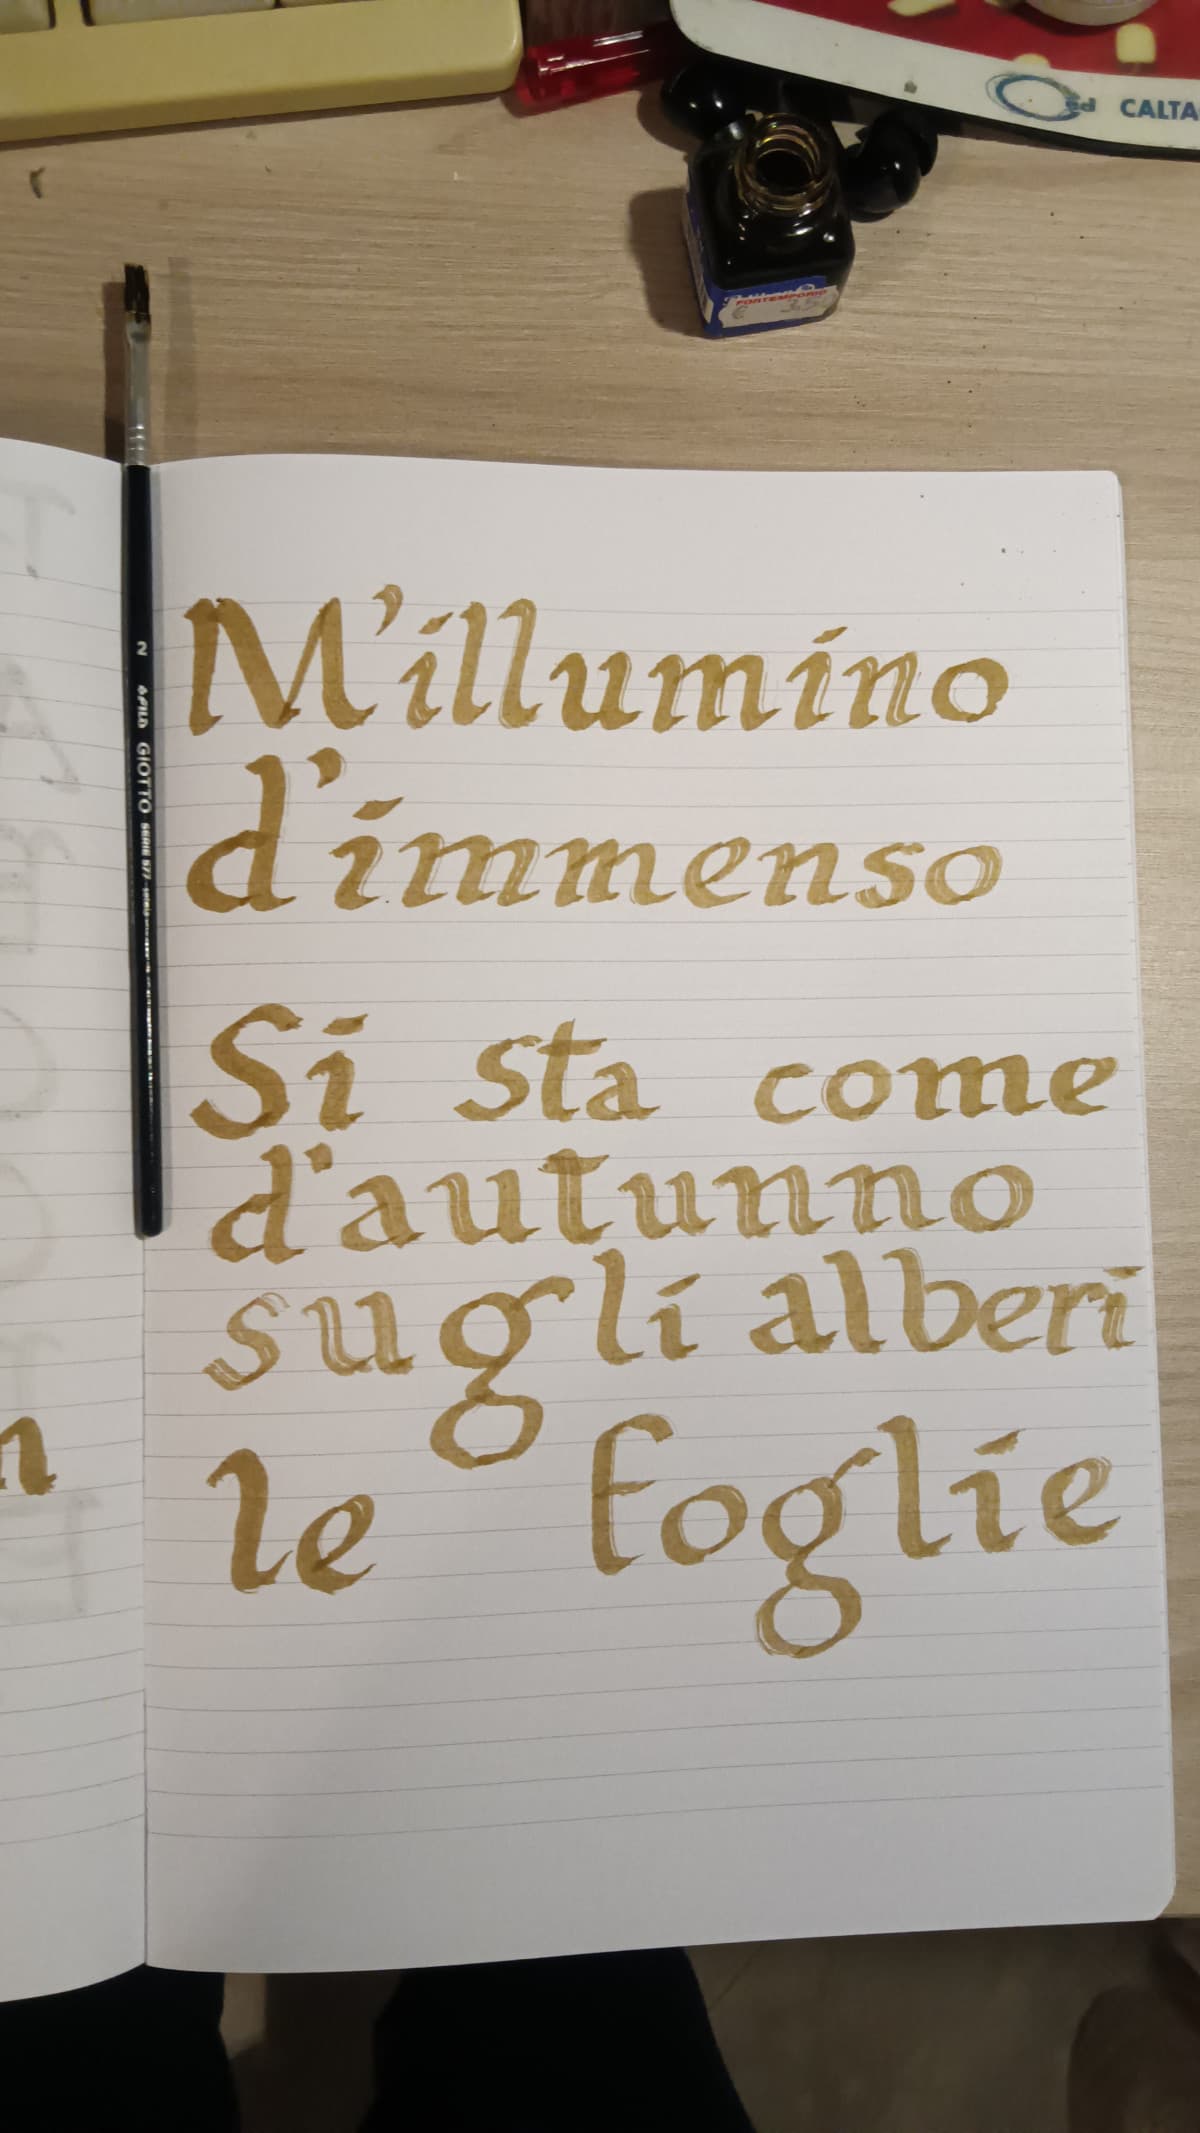 CALTA
FORTEMPORIO
€ 3,5
2 FILA GIOTTO SERIE 577
M'illumino
d'immenso
Si sta come
d'autunno
sugli alberi
le foglie
n